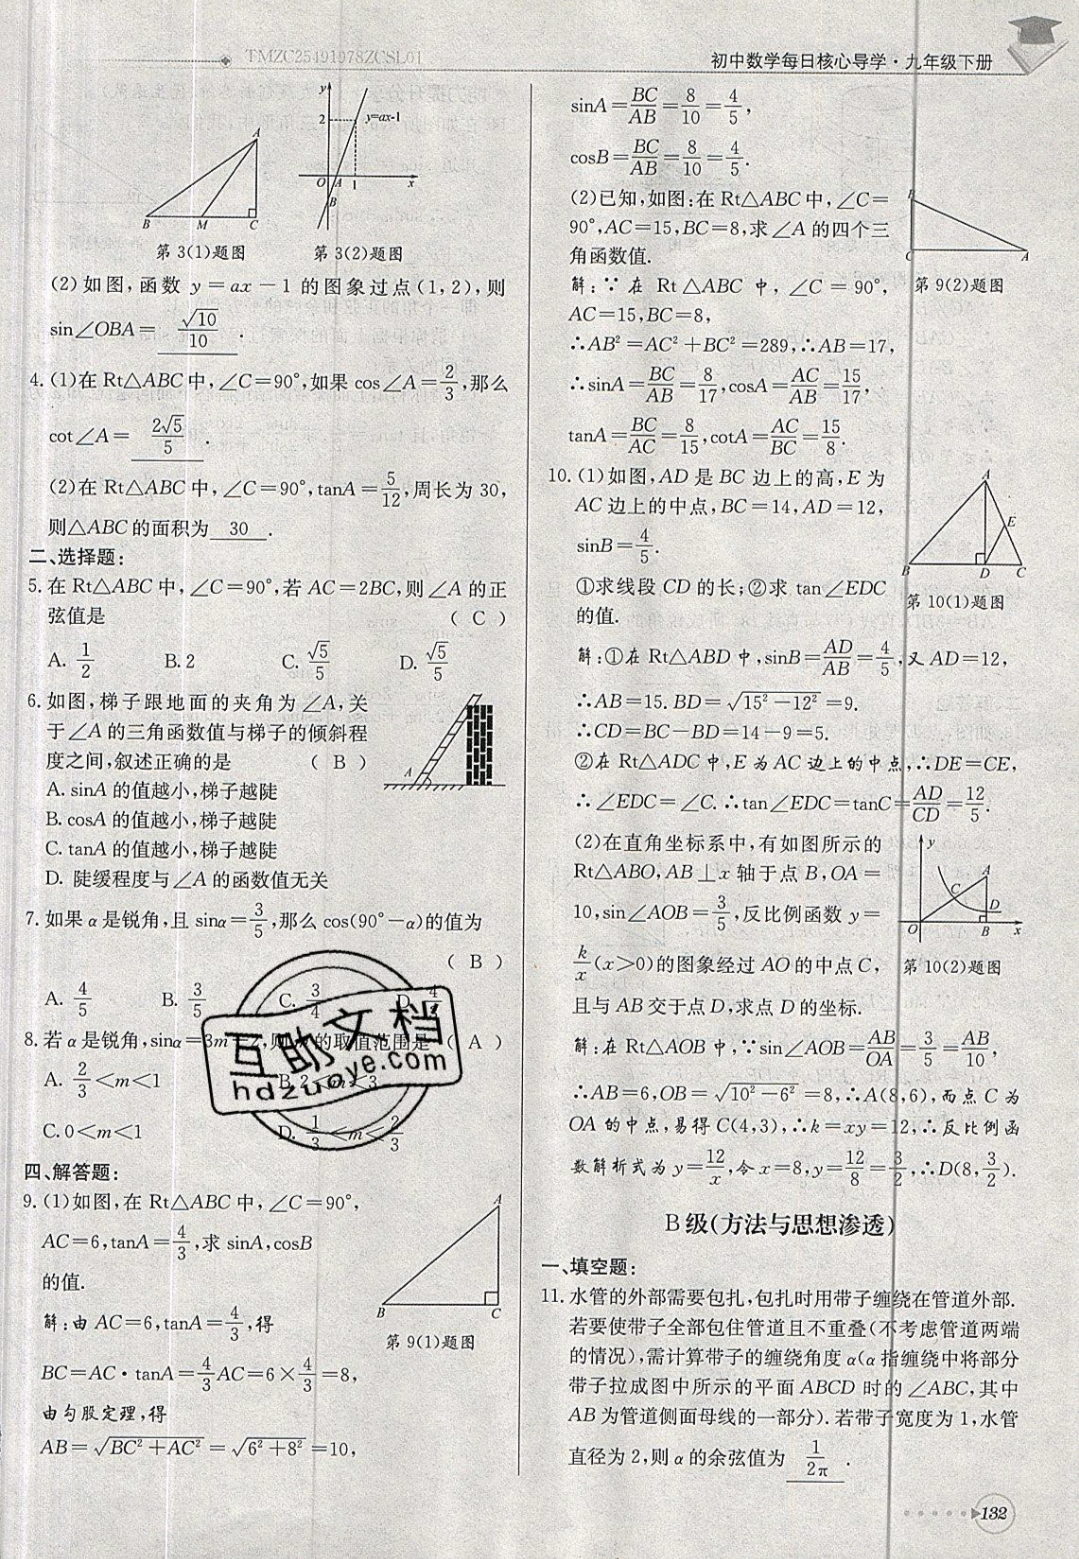 TMZC25491978ZCSL01
初中数学每日核心导学·九年级下册
A
B M C
第3(1)题图
y
2
y=ax-1
O A 1 x
B
第3(2)题图
(2)如图,函数 y=ax-1 的图象过点(1,2),则
sin∠OBA= √10/10 .
4.(1)在Rt△ABC中,∠C=90°,如果 cos∠A=2/3,那么
cot∠A= 2√5/5 .
(2)在Rt△ABC中,∠C=90°,tanA=5/12,周长为30,
则△ABC的面积为 30 .
二、选择题:
5.在Rt△ABC中,∠C=90°,若AC=2BC,则∠A的正
弦值是 ( C )
A. 1/2 B.2 C. √5/5 D. √5/5
6.如图,梯子跟地面的夹角为∠A,关
于∠A的三角函数值与梯子的倾斜程
度之间,叙述正确的是 ( B )
A
A. sinA的值越小,梯子越陡
B. cosA的值越小,梯子越陡
C. tanA的值越小,梯子越陡
D. 陡缓程度与∠A的函数值无关
7.如果α是锐角,且 sinα=3/5,那么cos(90°-α)的值为
( B )
A. 4/5 B. 3/5 C. 3/4 D. 4
8.若α是锐角,sinα=3m-2,则 的取值范围是 ( A )
A. 2/3<m<1
C.0<m<1 D. 1/3<m<2/3
互助文档
hdzuoye.com
四、解答题:
9.(1)如图,在Rt△ABC中,∠C=90°,
AC=6,tanA=4/3,求sinA,cosB
的值.
A
B C
第9(1)题图
解:由AC=6,tanA=4/3,得
BC=AC·tanA=4/3AC=6×4/3=8,
由勾股定理,得
AB=√BC²+AC²=√6²+8²=10,
sinA=BC/AB=8/10=4/5,
cosB=BC/AB=8/10=4/5.
(2)已知,如图:在Rt△ABC中,∠C=
90°,AC=15,BC=8,求∠A的四个三
角函数值.
B
C A
第9(2)题图
解:∵在Rt△ABC中,∠C=90°,
AC=15,BC=8,
∴AB²=AC²+BC²=289,∴AB=17,
∴sinA=BC/AB=8/17,cosA=AC/AB=15/17,
tanA=BC/AC=8/15,cotA=AC/BC=15/8.
10.(1)如图,AD是BC边上的高,E为
AC边上的中点,BC=14,AD=12,
sinB=4/5.
①求线段CD的长;②求tan∠EDC
的值.
A
E
B D C
第10(1)题图
解:①在Rt△ABD中,sinB=AD/AB=4/5,又AD=12,
∴AB=15. BD=√15²-12²=9.
∴CD=BC-BD=14-9=5.
②在Rt△ADC中,E为AC边上的中点,∴DE=CE,
∴∠EDC=∠C.∴tan∠EDC=tanC=AD/CD=12/5.
(2)在直角坐标系中,有如图所示的
Rt△ABO,AB⊥x轴于点B,OA=
10,sin∠AOB=3/5,反比例函数y=
k/x(x>0)的图象经过AO的中点C,
且与AB交于点D,求点D的坐标.
y
A
C
D
O B x
第10(2)题图
解:在Rt△AOB中,∵sin∠AOB=AB/OA=3/5=AB/10,
∴AB=6,OB=√10²-6²=8,∴A(8,6),而点C为
OA的中点,易得C(4,3),∴k=xy=12,∴反比例函
数解析式为y=12/x,令x=8,y=12/8=3/2,∴D(8,3/2).
B级(方法与思想渗透)
一、填空题:
11.水管的外部需要包扎,包扎时用带子缠绕在管道外部.
若要使带子全部包住管道且不重叠(不考虑管道两端
的情况),需计算带子的缠绕角度α(α指缠绕中将部分
带子拉成图中所示的平面ABCD时的∠ABC,其中
AB为管道侧面母线的一部分).若带子宽度为1,水管
直径为2,则α的余弦值为 1/2π .
132